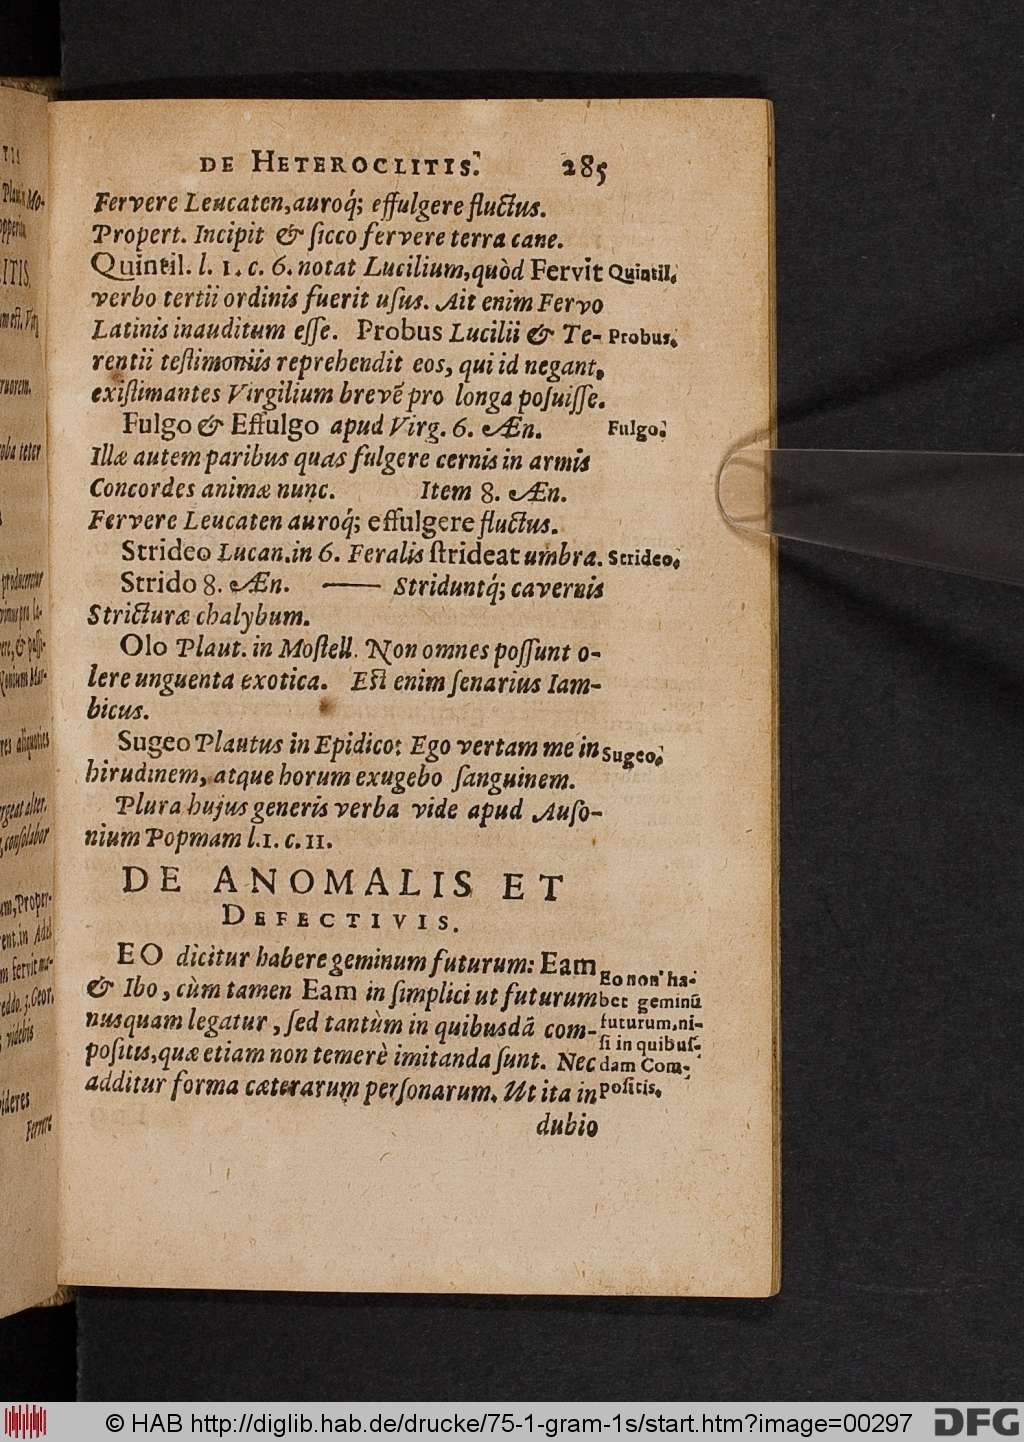 DE HETEROCLITIS. 285
Fervere Leucaten, auroq́; effulgere fluctus.
Propert. Incipit & sicco fervere terra cane.
Quintil. l. 1. c. 6. notat Lucilium, quòd Fervit Quintil.
verbo tertii ordinis fuerit usus. Ait enim Fervo
Latinis inauditum esse. Probus Lucilii & Te- Probus.
rentii testimoniis reprehendit eos, qui id negant,
existimantes Virgilium brevē pro longa posuisse.
Fulgo & Effulgo apud Virg. 6. Æn. Fulgo.
Illæ autem paribus quas fulgere cernis in armis
Concordes animæ nunc. Item 8. Æn.
Fervere Leucaten auroq́; effulgere fluctus.
Strideo Lucan. in 6. Feralis strideat umbra. Strideo.
Strido 8. Æn. —— Striduntq́; cavernis
Stricturæ chalybum.
Olo Plaut. in Mostell. Non omnes possunt o-
lere unguenta exotica. Est enim senarius Iam-
bicus.
Sugeo Plautus in Epidico: Ego vertam me in Sugeo.
hirudinem, atque horum exugebo sanguinem.
Plura hujus generis verba vide apud Auso-
nium Popmam l.1. c. 11.
DE ANOMALIS ET
DEFECTIVIS.
EO dicitur habere geminum futurum: Eam
& Ibo, cùm tamen Eam in simplici ut futurum
nusquam legatur, sed tantùm in quibusdã com-
positis, quæ etiam non temerè imitanda sunt. Nec
additur forma cæterarum personarum. Ut ita in
Eo non ha-
bet geminū
futurum, ni-
si in quibus-
dam Com-
positis.
dubio
© HAB http://diglib.hab.de/drucke/75-1-gram-1s/start.htm?image=00297
DFG